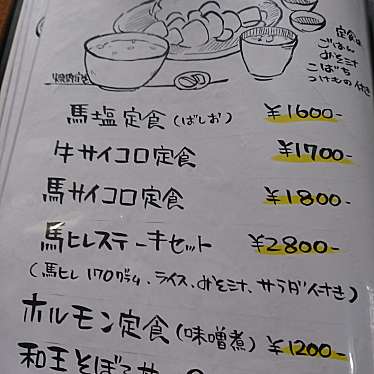 定食は
ごはん
みそ汁
こばち
つけもの付き
焼肉定食
馬塩定食(ばしお) ¥1600-
牛サイコロ定食 ¥1700-
馬サイコロ定食 ¥1800-
馬ヒレステーキセット ¥2800-
(馬ヒレ170グラム、ライス、みそ汁、サラダ付き)
ホルモン定食(味噌煮) ¥1200-
和王そぼろ丼